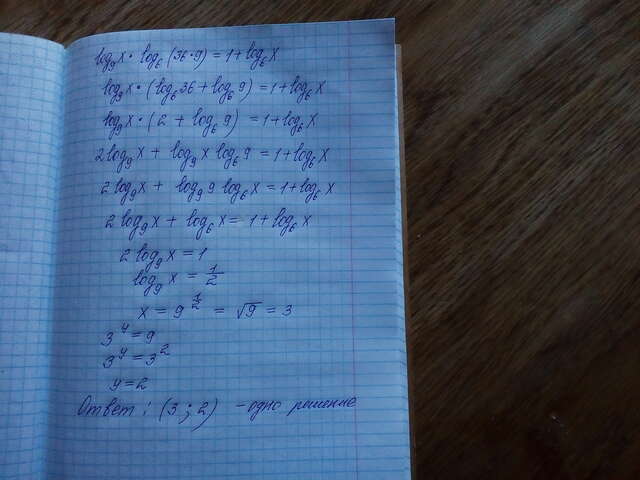 log₉x · log₆(36·9) = 1 + log₆x
log₉x · (log₆36 + log₆9) = 1 + log₆x
log₉x · (2 + log₆9) = 1 + log₆x
2log₉x + log₉x log₆9 = 1 + log₆x
2log₉x + log₉9 log₆x = 1 + log₆x
2log₉x + log₆x = 1 + log₆x
2log₉x = 1
log₉x = 1/2
x = 9^(1/2) = √9 = 3
3^y = 9
3^y = 3²
y = 2
Ответ: (3; 2) - одно решение